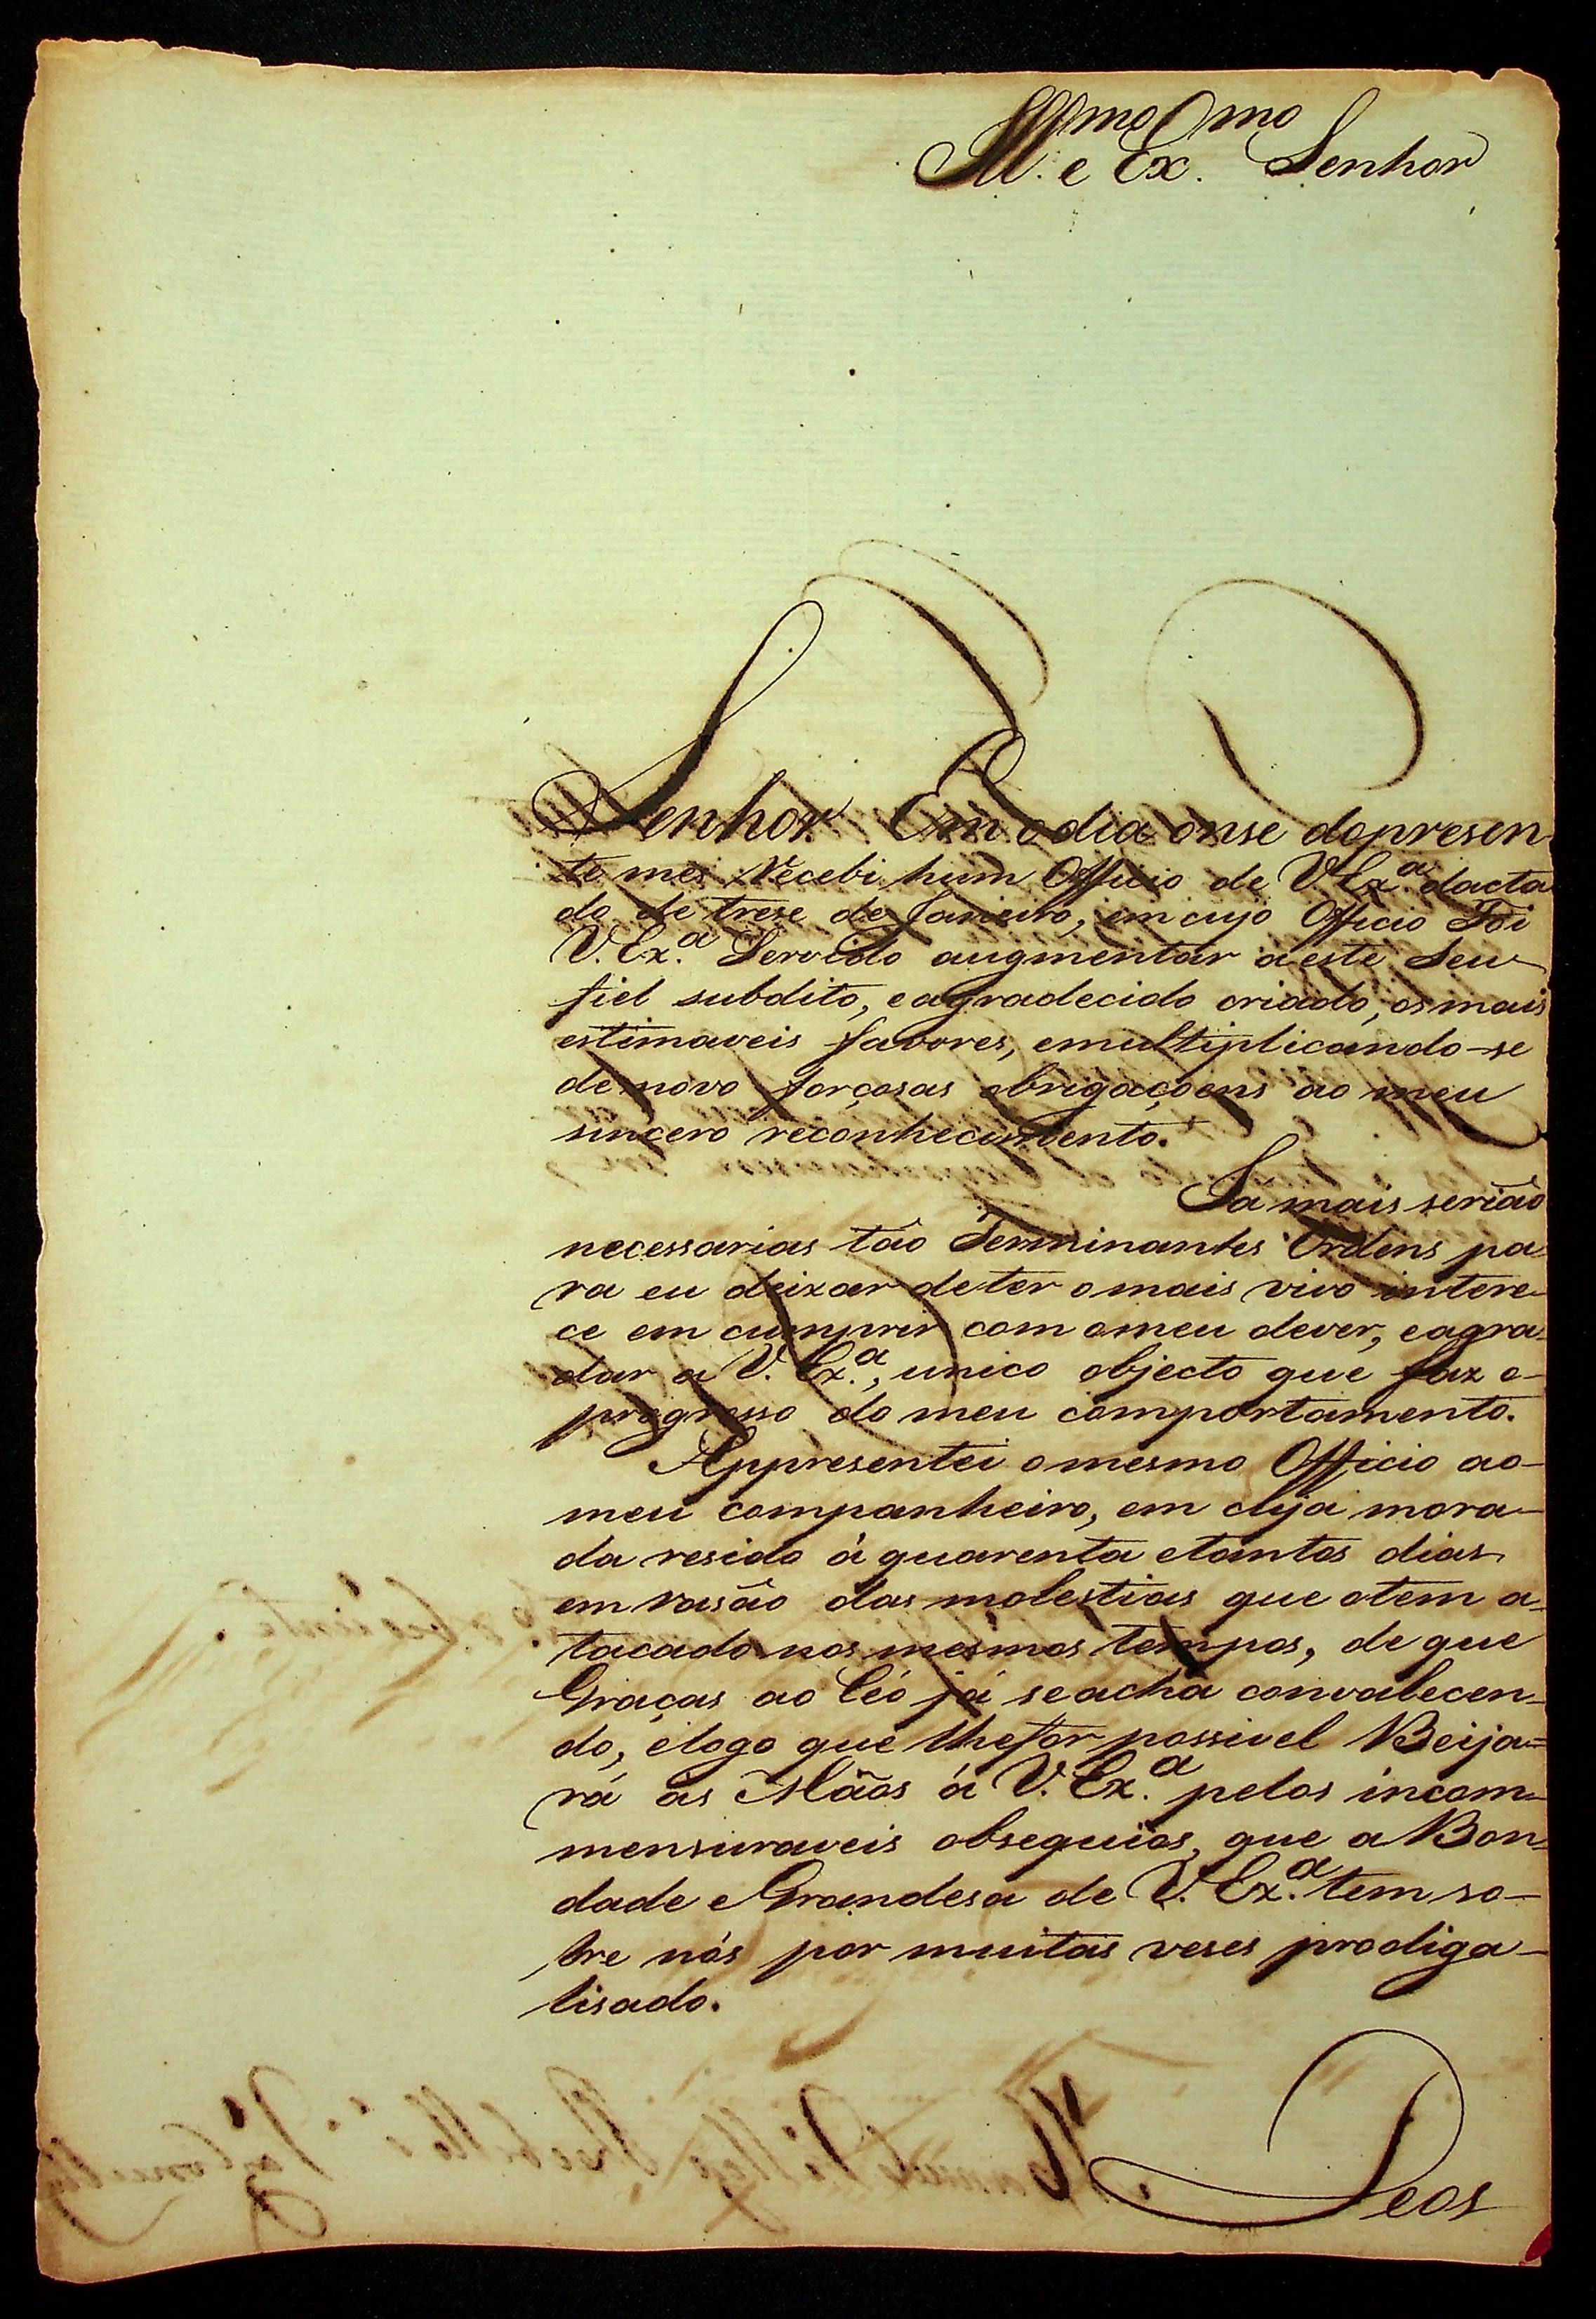 Ill.mo e Ex.mo Senhor
Senhor Em o dia onse dopresen
te mes Recebi hum Officio de V. Ex.a dacta
do de trese de Janeiro, em cujo Officio Foi
V. Ex.a Servido augmentar aeste Seu
fiel subdito, eagradecido criado, os mais
estimaveis favores, emultiplicando-se
de novo forçosas obrigaçoens ao meu
sincero reconhecimento.
Ja mais serião
necessarias tão Terminantes Ordens pa
ra eu deixar deter omais vivo intere-
ce em cumprir com omeu dever, eagra-
dar a V. Ex.a, unico objecto que faz o-
progresso do meu comportamento.
Appresentei omesmo Officio ao-
meu companheiro, em cuja mora-
da resido á quarenta etantos dias
em rasão das molestias que otem a-
tacado nos mesmos tempos, de que
Graças ao Céo já seacha convalecen-
do, elogo que lhefor possivel Beija=
rá as Mãos á V. Ex.a pelos incom-
mensuraveis obsequios, que a Bon-
dade eGrandesa de V. Ex.a tem so-
bre nós por muitas veses prodiga-
lisado.
Deos